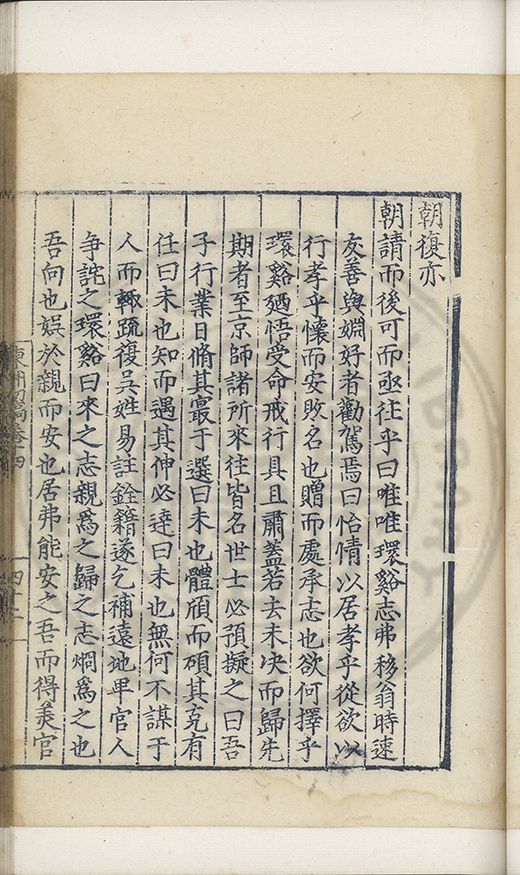 朝復亦
朝請而後可而亟往乎曰唯唯環谿志弗移翁時速
友善與婣好者勸駕焉曰怡情以居孝乎從欲以
行孝乎懷而安敗名也贈而處承志也欲何擇乎
環谿廼悟受命戒行具且肅蓋若去未决而歸先
期者至京師諸所來往皆名世士必預擬之曰吾
子行業日脩其最于選曰未也體頎而碩其克有
任曰未也知而遇其伸必逹曰未也無何不謀于
人而輙疏復吳姓易註銓籍遂乞補遠地𤰞官人
争詫之環谿曰來之志親爲之歸之志烱爲之也
吾向也娯於親而安也居弗能安之吾而得美官
東洲初稿卷十四
四十二